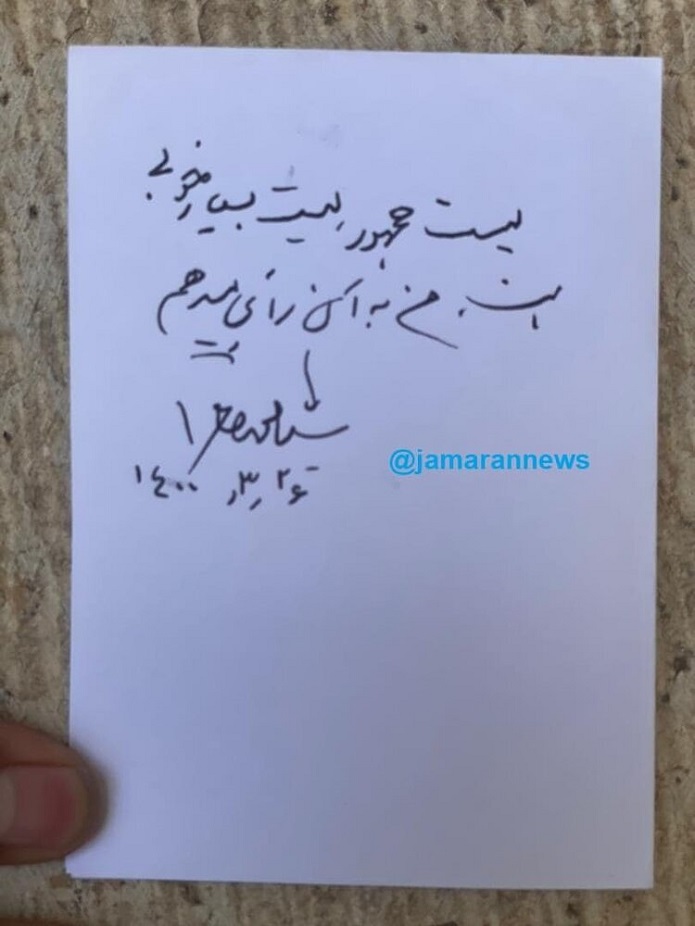 لیست جمهور، لیست بسیار خوبی
است. من به آن رأی میدهم
۱۴۰۰/۳/۲۶
@jamarannews